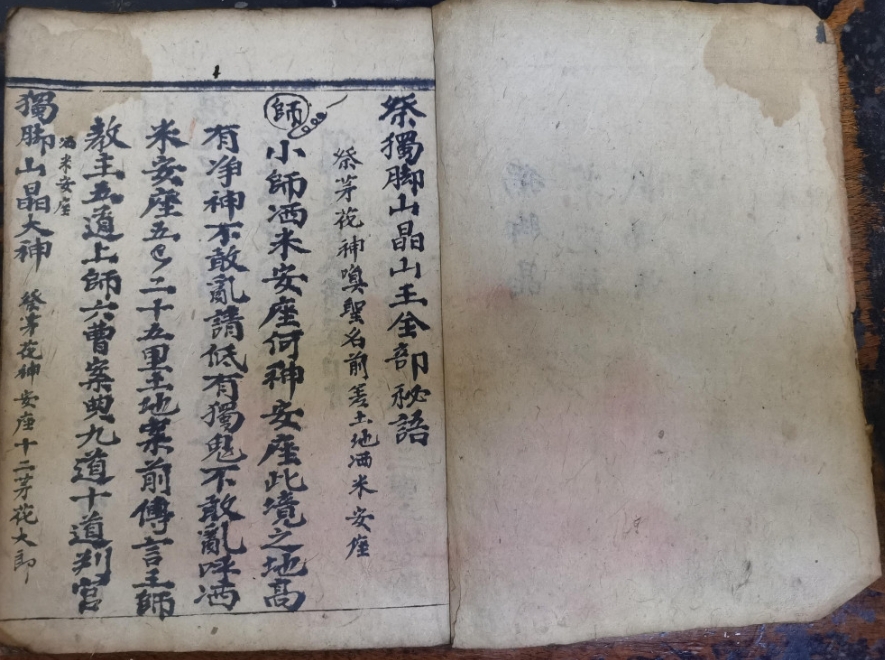 祭獨脚山晶山王全部秘語
祭茅花神嗅聖名前差土地洒米安座
師
小師洒米安座何神安座此境之地高
有净神不敢亂請低有獨鬼不敢亂呼洒
米安座五二十五里土地案前傳言玉師
教主五道上師六曹案典九道十道判官
洒米安座
獨脚山晶大神
祭茅花神安座十二茅花大郎